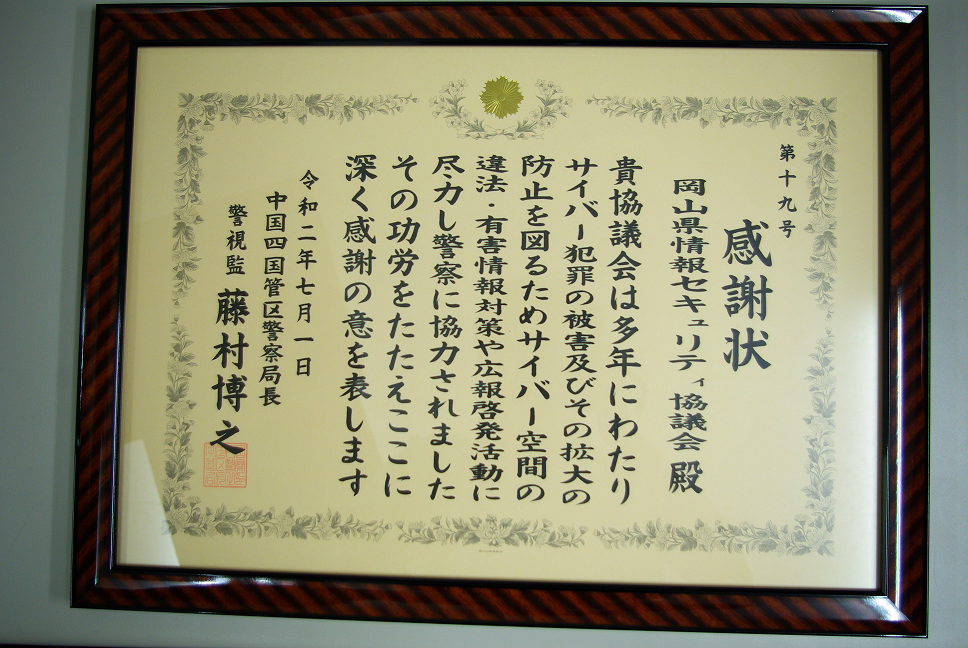 第十九号
感謝状
岡山県情報セキュリティ協議会 殿
貴協議会は多年にわたり
サイバー犯罪の被害及びその拡大の
防止を図るためサイバー空間の
違法・有害情報対策や広報啓発活動に
尽力し警察に協力されました
その功労をたたえここに
深く感謝の意を表します
令和二年七月一日
中国四国管区警察局長
警視監 藤村博之